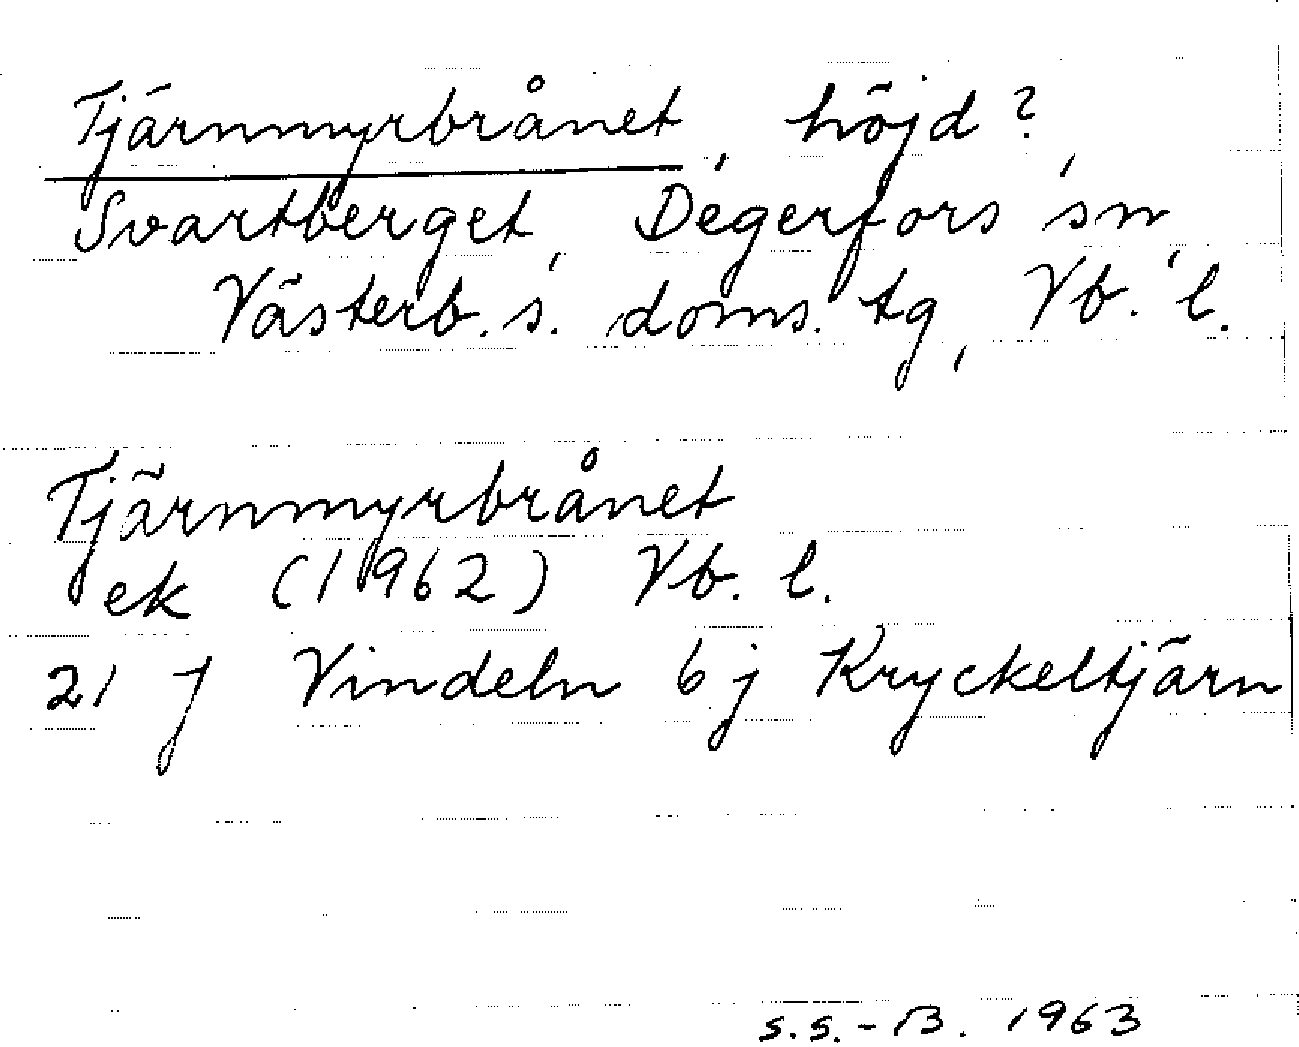 Tjärnmyrbrånet, höjd?,
Svartberget, Degerfors sn,
Västerb. s. doms. tg, Vb. l.
Tjärnmyrbrånet
ek (1962) Vb. l.
21 J Vindeln 6 j Kryckeltjärn
S.S.-B. 1963